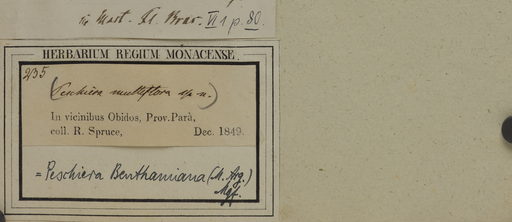 in Mart. Fl. Bras. VI 1 p. 80.
HERBARIUM REGIUM MONACENSE.
235
(Peschiera multiflora sp. n.)
In vicinibus Obidos, Prov. Parà,
coll. R. Spruce, Dec. 1849.
= Peschiera Benthamiana (M. Arg.)
Mgf.